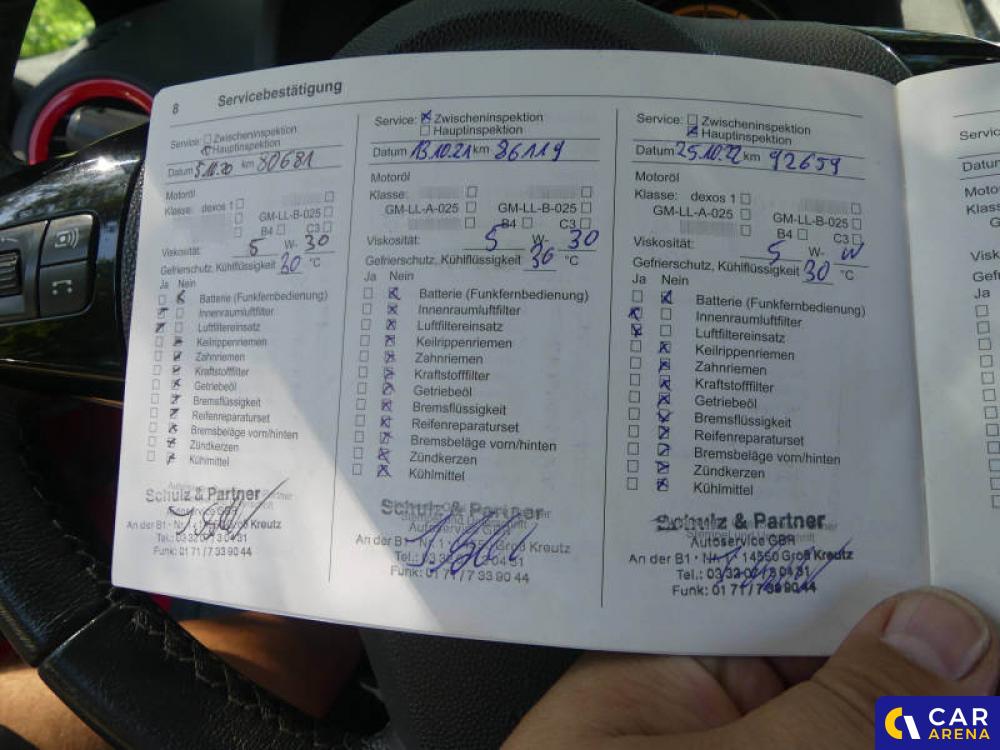 8 Servicebestätigung
Service: Zwischeninspektion
Hauptinspektion
Datum 5.10.20 km 80681
Motoröl
Klasse: dexos 1
GM-LL-B-025
B4 C3
Viskosität: 5 W- 30
Gefrierschutz, Kühlflüssigkeit 30 °C
Ja Nein
Batterie (Funkfernbedienung)
Innenraumluftfilter
Luftfiltereinsatz
Keilrippenriemen
Zahnriemen
Kraftstofffilter
Getriebeöl
Bremsflüssigkeit
Reifenreparaturset
Bremsbeläge vorn/hinten
Zündkerzen
Kühlmittel
Schulz & Partner
Autoservice GBR
An der B1 Groß Kreutz
Funk: 01 71 / 7 33 90 44
Service: Zwischeninspektion
Hauptinspektion
Datum 13.10.21 km 86119
Motoröl
Klasse:
GM-LL-A-025 GM-LL-B-025
B4 C3
Viskosität: 5 W- 30
Gefrierschutz, Kühlflüssigkeit 30 °C
Ja Nein
Batterie (Funkfernbedienung)
Innenraumluftfilter
Luftfiltereinsatz
Keilrippenriemen
Zahnriemen
Kraftstofffilter
Getriebeöl
Bremsflüssigkeit
Reifenreparaturset
Bremsbeläge vorn/hinten
Zündkerzen
Kühlmittel
Schulz & Partner
Autoservice GBR
An der B1 Nr. 1 Groß Kreutz
Funk: 01 71 / 7 33 90 44
Service: Zwischeninspektion
Hauptinspektion
Datum 25.10.22 km 92659
Motoröl
Klasse: dexos 1
GM-LL-A-025 GM-LL-B-025
B4 C3
Viskosität: 5 W-
Gefrierschutz, Kühlflüssigkeit 30 °C
Ja Nein
Batterie (Funkfernbedienung)
Innenraumluftfilter
Luftfiltereinsatz
Keilrippenriemen
Zahnriemen
Kraftstofffilter
Getriebeöl
Bremsflüssigkeit
Reifenreparaturset
Bremsbeläge vorn/hinten
Zündkerzen
Kühlmittel
Schulz & Partner
Autoservice GBR
An der B1 · Nr. 1 · 14550 Groß Kreutz
Funk: 01 71 / 7 33 90 44
Ja
CAR
ARENA